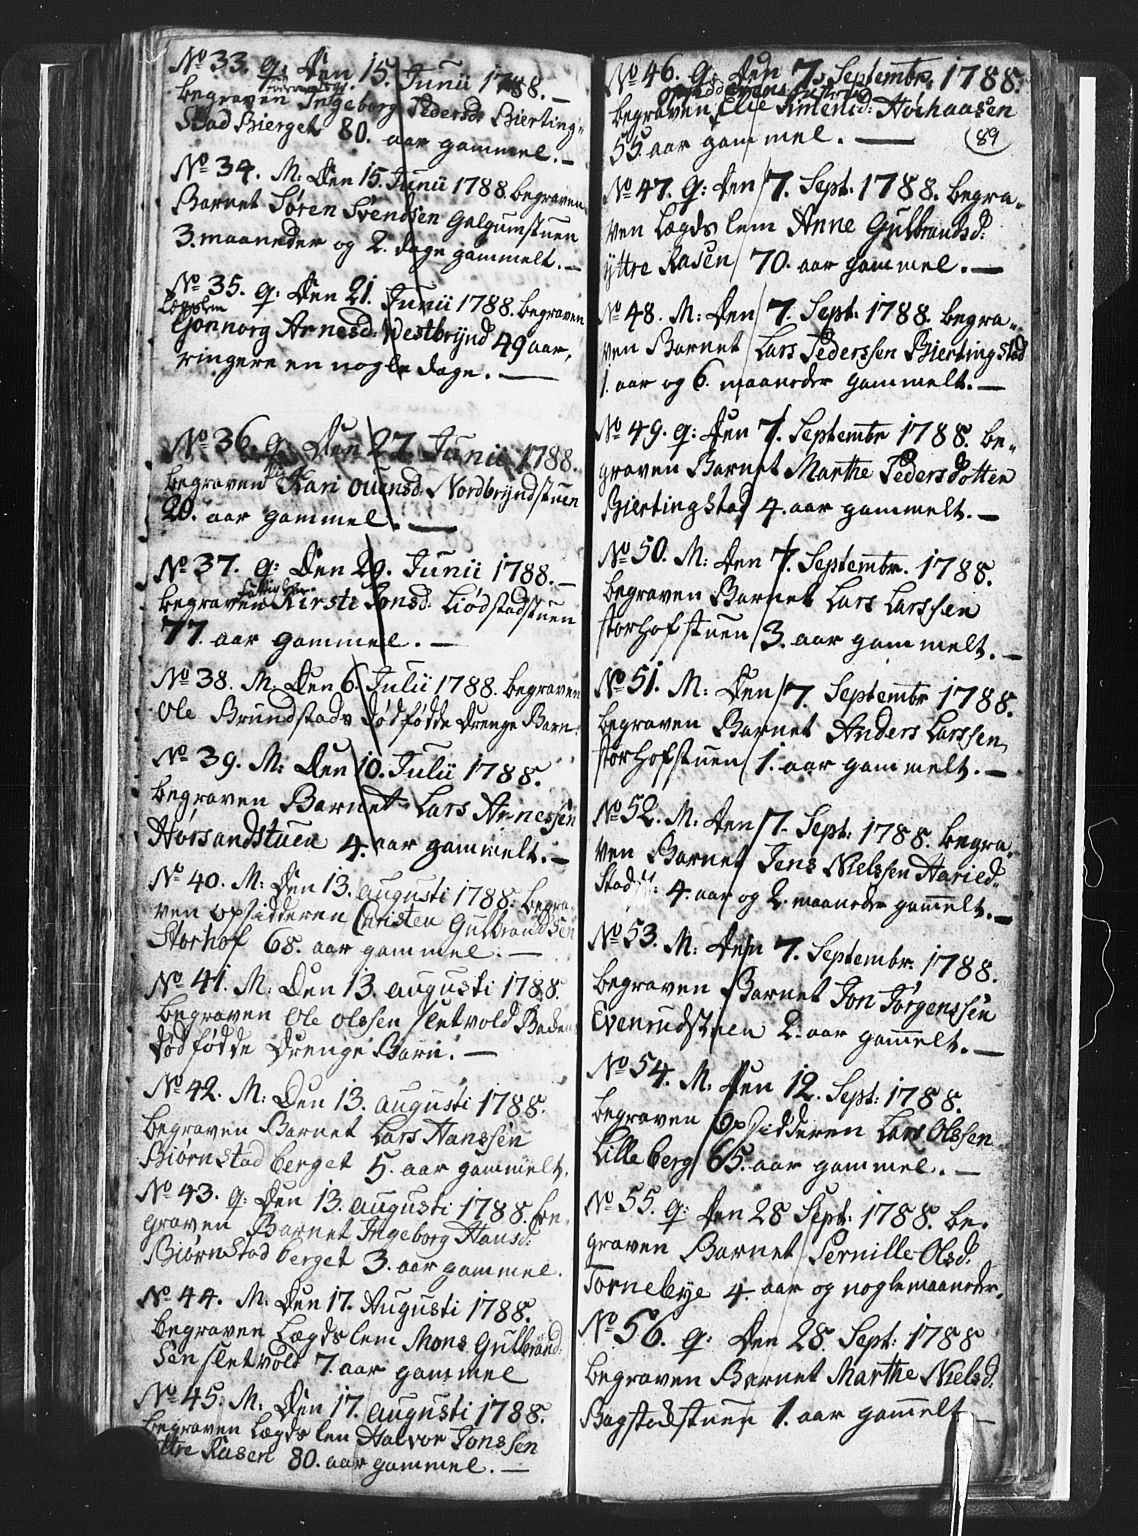 No 33. q: Den 15. Junii 1788. —
begraven Ingeborg Pedersd: Bierting-
Stad Bierget 80. aar gammel. —
No 34. M: Den 15. Junii 1788. begraven
Barnet Søren Svendsen Galgumstuen
3. maaneder og 2. dage gammelt. —
No 35. q: Den 21. Junii 1788. begraven
Lægslem
Gonnorg Arnesd: Westbrÿnd 49 aar,
ringere en nogle dage. —
No 36. q. Den 27. Junii 1788.
begraven Kari Ouensd. Nordbrÿndstuen
20. aar gammel. —
No 37. q: Den 29. Junii 1788. —
begraven Kirsti Jonsd: Liødstadstuen
77. aar gammel. —
No 38. M. Den 6. Julii 1788. begraven
Ole Brundstads dødfødde Drenge Barn.
No 39. M: Den 10. Julii 1788.
begraven Barnet Lars Arnessen
Hørsandstuen 4. aar gammelt. —
No 40. M: Den 13. augusti 1788. begra-
ven opsidderen Christen Gulbrandsen
Storhof 68. aar gammel. —
No 41. M: Den 13. augusti 1788.
begraven Ole Olssen Sletvold Baden
dødfødde Drenge Barn. —
No 42. M: Den 13. augusti 1788.
begraven Barnet Lars Hanssen
Biørnstad berget 5. aar gammelt.
No 43. q: Den 13. augusti 1788. be-
graven Barnet Ingeborg Hansd:
Biørnstad berget 3. aar gammel.
No 44. M: Den 17. Augusti 1788.
begraven Lægdslem Mons Gulbrand-
sen Sletvold 7. aar gammel
No 45. M. Den 17. augusti 1788.
begraven Lægds lem Halvor Jonssen
ÿttre Rasen 80. aar gammel. —
No 46. q: Den 7. Septembr. 1788.
begraven Elie Simensd: Hoihaasen
55. aar gammel. —
89
No 47. q: Den 7. Sept: 1788. begra-
ven Lægds lem Anne Gulbrandsd:
ÿttre Rasen 70. aar gammel. —
No 48. M: Den 7. Sept: 1788. begra-
ven Barnet Lars Pederssen Biertingstad
1. aar og 6. maaneder gammelt. —
No 49. q: Den 7. Septembr 1788. be-
graven Barnet Marthe Pedersdotter
Biertingstad 4. aar gammelt. —
No 50. M: Den 7. Septembr. 1788.
begraven Barnet Lars Larssen
Storhofstuen 3. aar gammelt. —
No 51. M: Den 7. Septembr 1788.
begraven Barnet Anders Larssen
Storhofstuen 1. aar gammelt. —
No 52. M: Den 7. Sept: 1788. begra-
ven Barnet Jens Nielssen Haried-
Stad 4. aar og 2. maaneder gam̄elt. —
No 53. M: Den 7. Septembr. 1788.
begraven Barnet Jon Jørgenssen
Evenrudstuen 2. aar gam̄elt. —
No 54. M: Den 12. Sept: 1788.
begraven Opsidderen Lars Olssen
Lilleberg 65. aar gammel. —
No 55. q: Den 28 Sept: 1788. be-
graven Barnet Pernille Olsd.
Tornebÿe 4. aar og nogle maaneder.
No 56. q: Den 28. Sept: 1788
begraven Barnet Marthe Nielsd.
Bagstadstuen 1. aar gam̄elt —